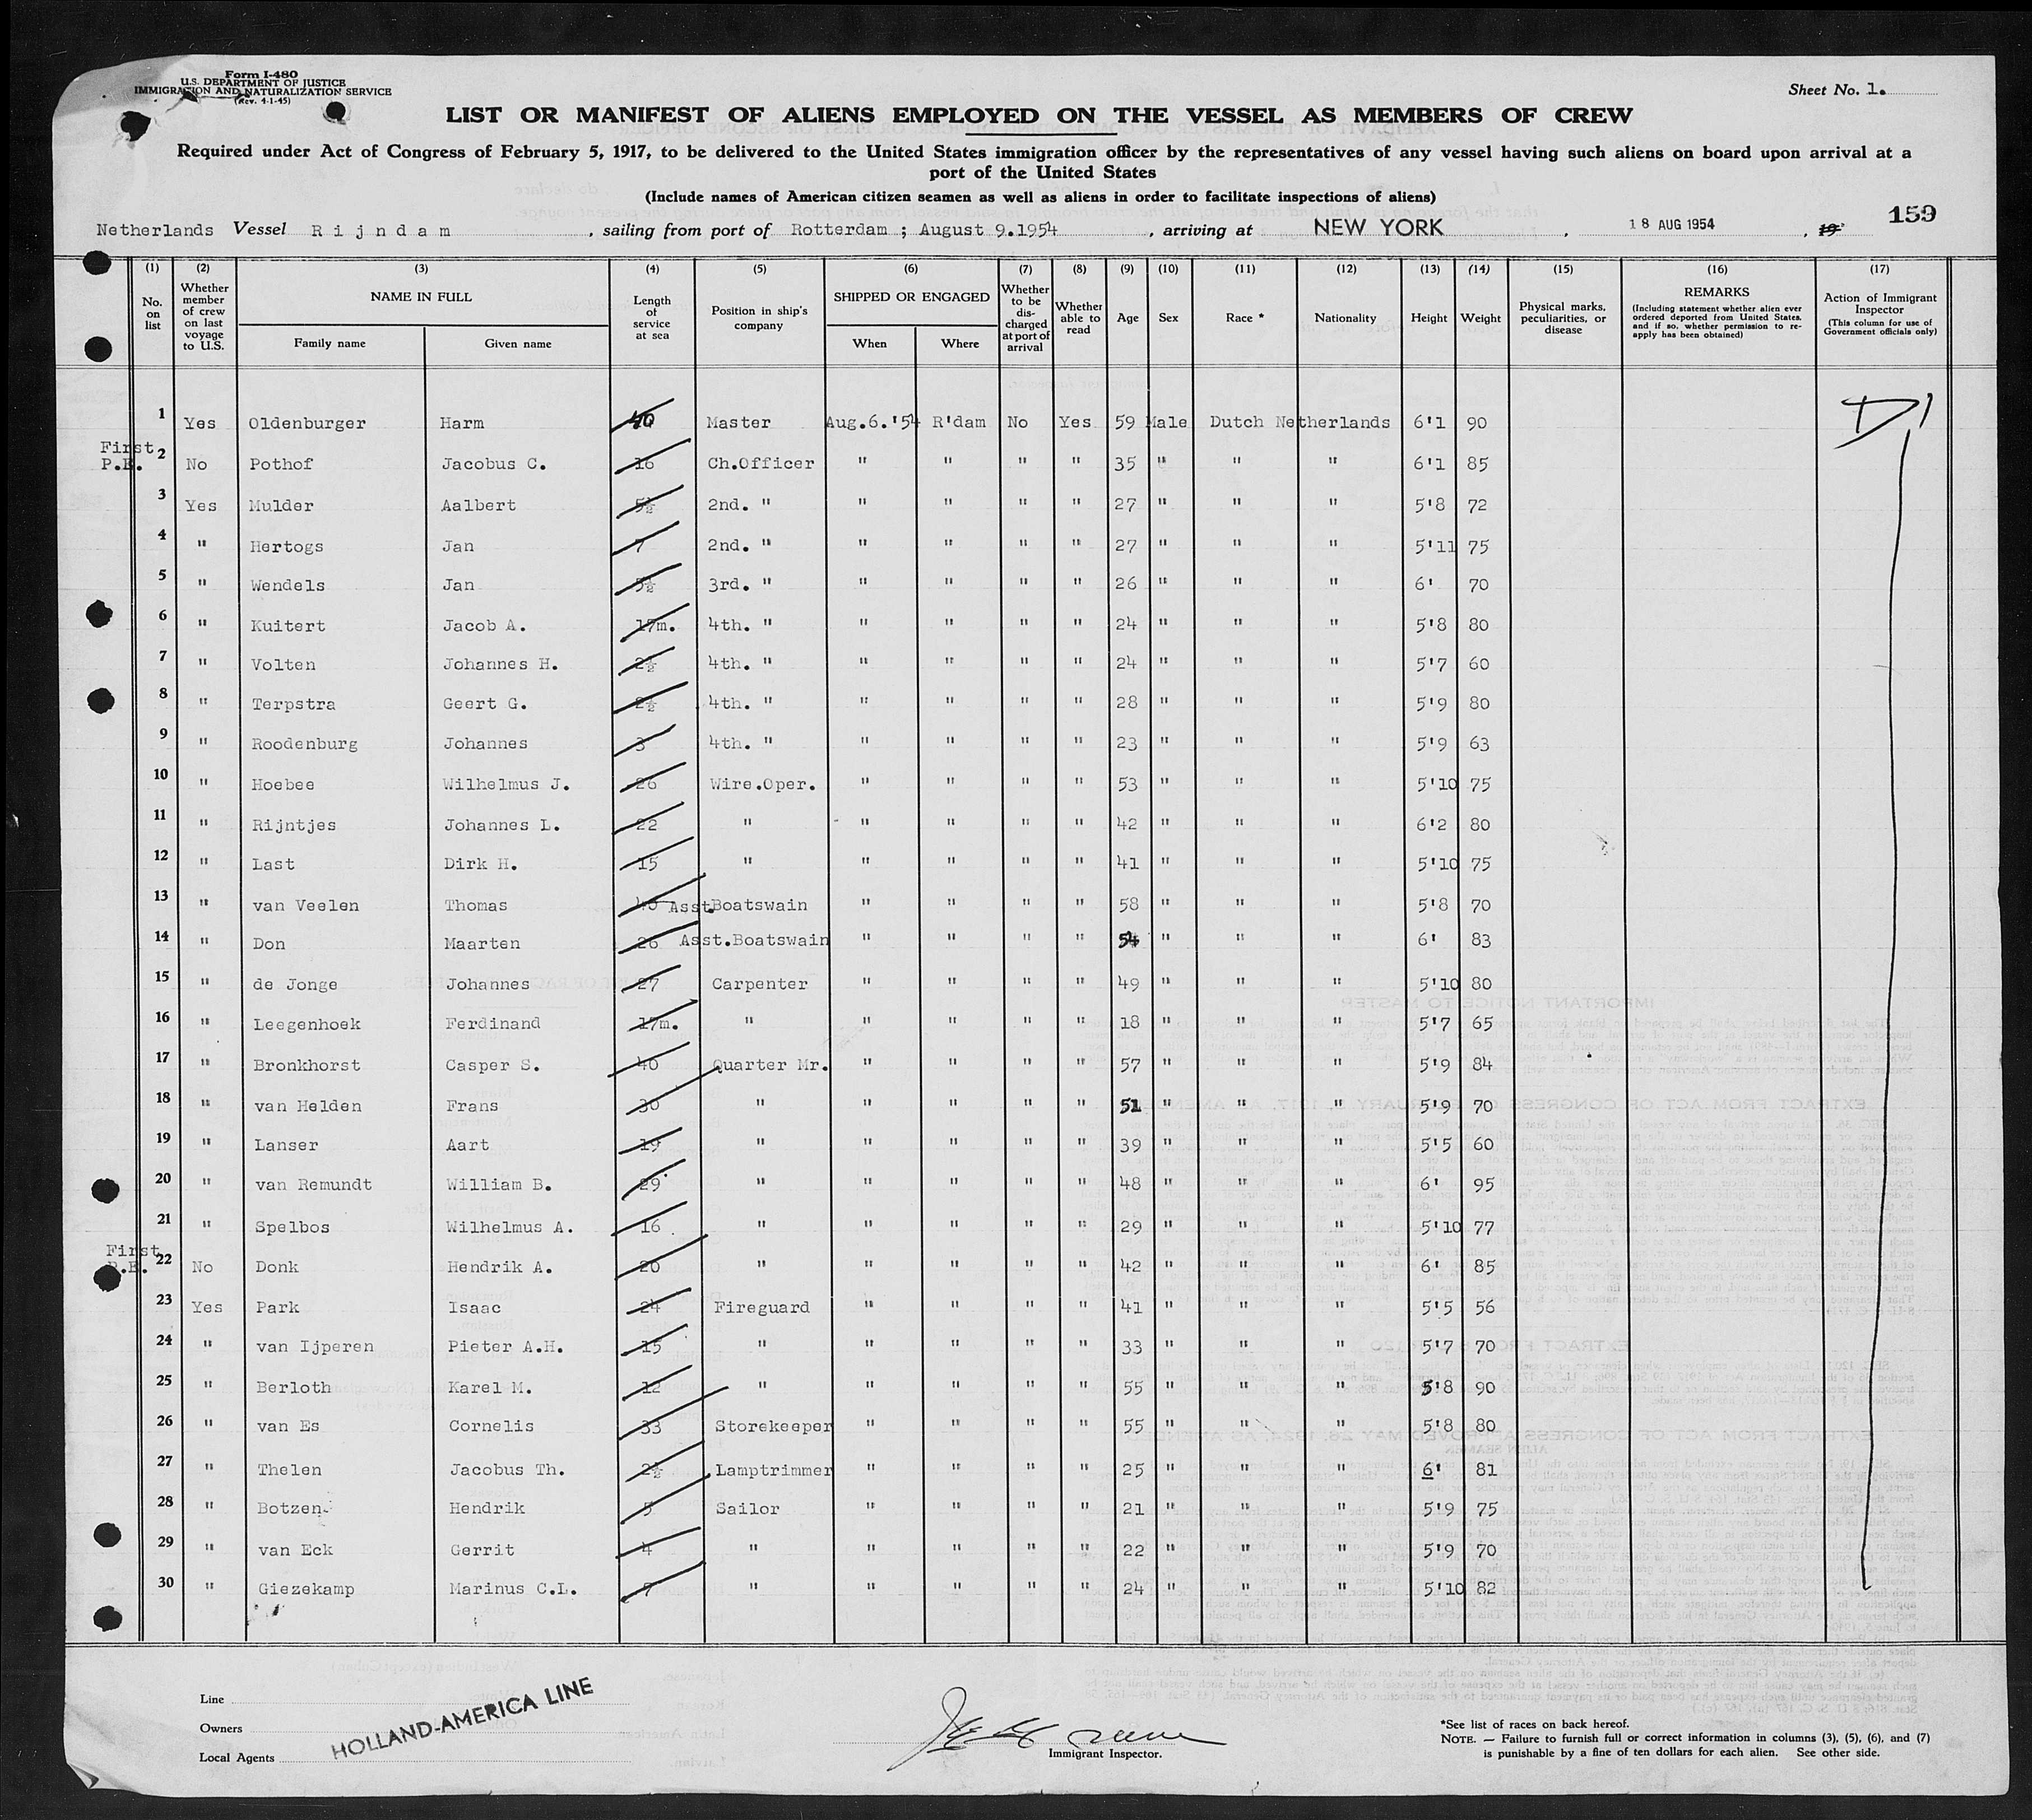 Form I-480
U.S. DEPARTMENT OF JUSTICE
IMMIGRATION AND NATURALIZATION SERVICE
(Rev. 4-1-45)
Sheet No. 1.
LIST OR MANIFEST OF ALIENS EMPLOYED ON THE VESSEL AS MEMBERS OF CREW
Required under Act of Congress of February 5, 1917, to be delivered to the United States immigration officer by the representatives of any vessel having such aliens on board upon arrival at a
port of the United States
(Include names of American citizen seamen as well as aliens in order to facilitate inspections of aliens)
Netherlands Vessel Rijndam, sailing from port of Rotterdam ; August 9.1954, arriving at NEW YORK, 18 AUG 1954, 19 159
(1) (2) (3) (4) (5) (6) (7) (8) (9) (10) (11) (12) (13) (14) (15) (16) (17)
No. on list | Whether member of crew on last voyage to U.S. | NAME IN FULL Family name Given name | Length of service at sea | Position in ship's company | SHIPPED OR ENGAGED When Where | Whether to be discharged at port of arrival | Whether able to read | Age | Sex | Race * | Nationality | Height | Weight | Physical marks, peculiarities, or disease | REMARKS (Including statement whether alien ever ordered deported from United States, and if so, whether permission to re-apply has been obtained) | Action of Immigrant Inspector (This column for use of Government officials only)
1 Yes Oldenburger Harm 40 Master Aug.6.'54 R'dam No Yes 59 Male Dutch Netherlands 6'1 90
First P.E. 2 No Pothof Jacobus C. 16 Ch.Officer " " " " 35 " " " 6'1 85
3 Yes Mulder Aalbert 5½ 2nd. " " " " " 27 " " " 5'8 72
4 " Hertogs Jan 7 2nd. " " " " " 27 " " " 5'11 75
5 " Wendels Jan 5½ 3rd. " " " " " 26 " " " 6' 70
6 " Kuitert Jacob A. 17m. 4th. " " " " " 24 " " " 5'8 80
7 " Volten Johannes H. 2½ 4th. " " " " " 24 " " " 5'7 60
8 " Terpstra Geert G. 2½ 4th. " " " " " 28 " " " 5'9 80
9 " Roodenburg Johannes 3 4th. " " " " " 23 " " " 5'9 63
10 " Hoebee Wilhelmus J. 26 Wire.Oper. " " " " 53 " " " 5'10 75
11 " Rijntjes Johannes L. 22 " " " " " 42 " " " 6'2 80
12 " Last Dirk H. 15 " " " " " 41 " " " 5'10 75
13 " van Veelen Thomas 40 Asst.Boatswain " " " " 58 " " " 5'8 70
14 " Don Maarten 26 Asst.Boatswain " " " " 54 " " " 6' 83
15 " de Jonge Johannes 27 Carpenter " " " " 49 " " " 5'10 80
16 " Leegenhoek Ferdinand 17m. " " " " " 18 " " " 5'7 65
17 " Bronkhorst Casper S. 40 Quarter Mr. " " " " 57 " " " 5'9 84
18 " van Helden Frans 30 " " " " " 51 " " " 5'9 70
19 " Lanser Aart 19 " " " " " 39 " " " 5'5 60
20 " van Remundt William B. 29 " " " " " 48 " " " 6' 95
21 " Spelbos Wilhelmus A. 16 " " " " " 29 " " " 5'10 77
First P.E. 22 No Donk Hendrik A. 20 " " " " " 42 " " " 6' 85
23 Yes Park Isaac 24 Fireguard " " " " 41 " " " 5'5 56
24 " van Ijperen Pieter A.H. 15 " " " " " 33 " " " 5'7 70
25 " Berloth Karel M. 12 " " " " " 55 " " " 5'8 90
26 " van Es Cornelis 33 Storekeeper " " " " 55 " " " 5'8 80
27 " Thelen Jacobus Th. 2½ Lamptrimmer " " " " 25 " " " 6' 81
28 " Botzen Hendrik 5 Sailor " " " " 21 " " " 5'9 75
29 " van Eck Gerrit 4 " " " " " 22 " " " 5'9 70
30 " Giezekamp Marinus C.L. 7 " " " " " 24 " " " 5'10 82
Line
Owners
Local Agents
HOLLAND-AMERICA LINE
Immigrant Inspector.
*See list of races on back hereof.
NOTE. — Failure to furnish full or correct information in columns (3), (5), (6), and (7)
is punishable by a fine of ten dollars for each alien. See other side.